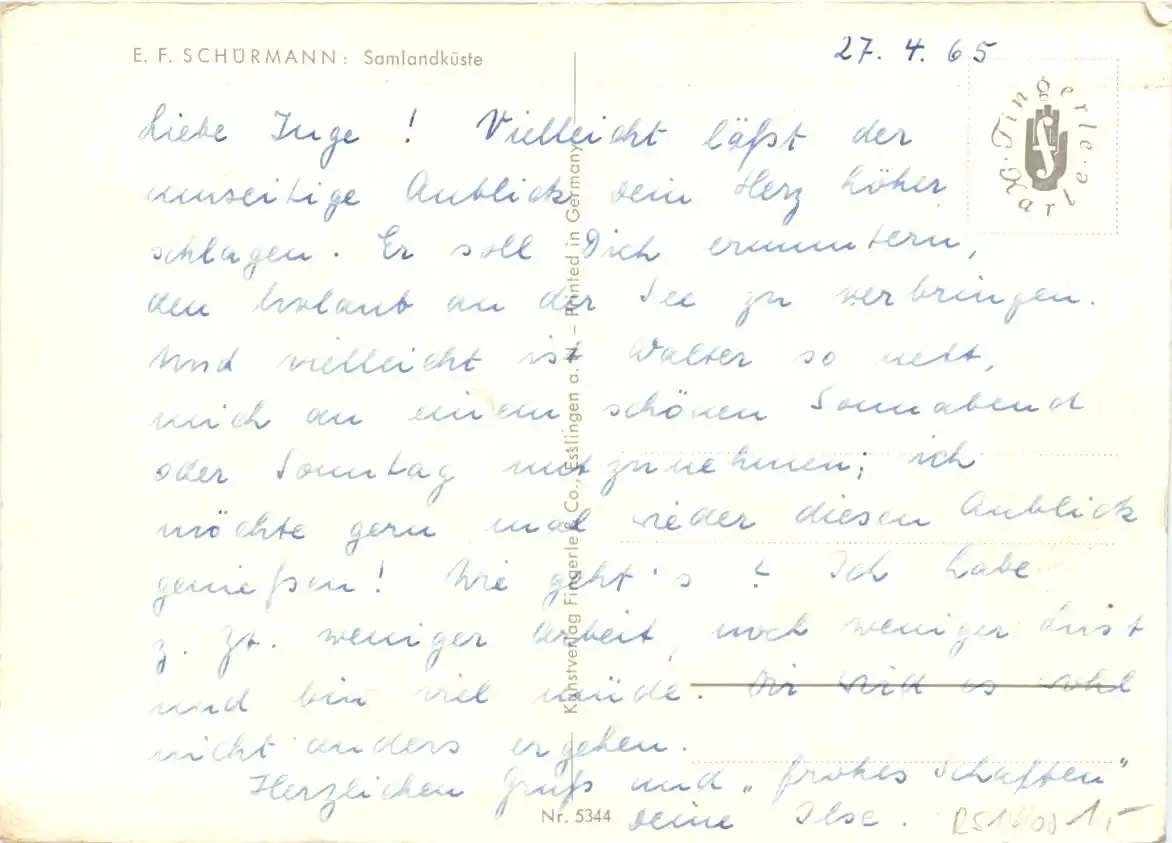 E. F. SCHÜRMANN: Samlandküste
27. 4. 65
Karl Fingerle
Liebe Inge! Vielleicht läßt der
umseitige Anblick Dein Herz höher
schlagen. Er soll Dich ermuntern,
den Urlaub an der See zu verbringen.
Und vielleicht ist Walter so nett,
mich an einem schönen Sonnabend
oder Sonntag mitzunehmen; ich
möchte gern mal wieder diesen Anblick
genießen! Wie geht's? Ich habe
z. Zt. weniger Arbeit, noch weniger Lust
und bin viel müde. Dir wird es wohl
nicht anders ergehen.
Herzlichen Gruß und „frohes Schaffen"
Deine Ilse.
Kunstverlag Fingerle & Co., Esslingen a. N. – Printed in Germany
Nr. 5344
1,-